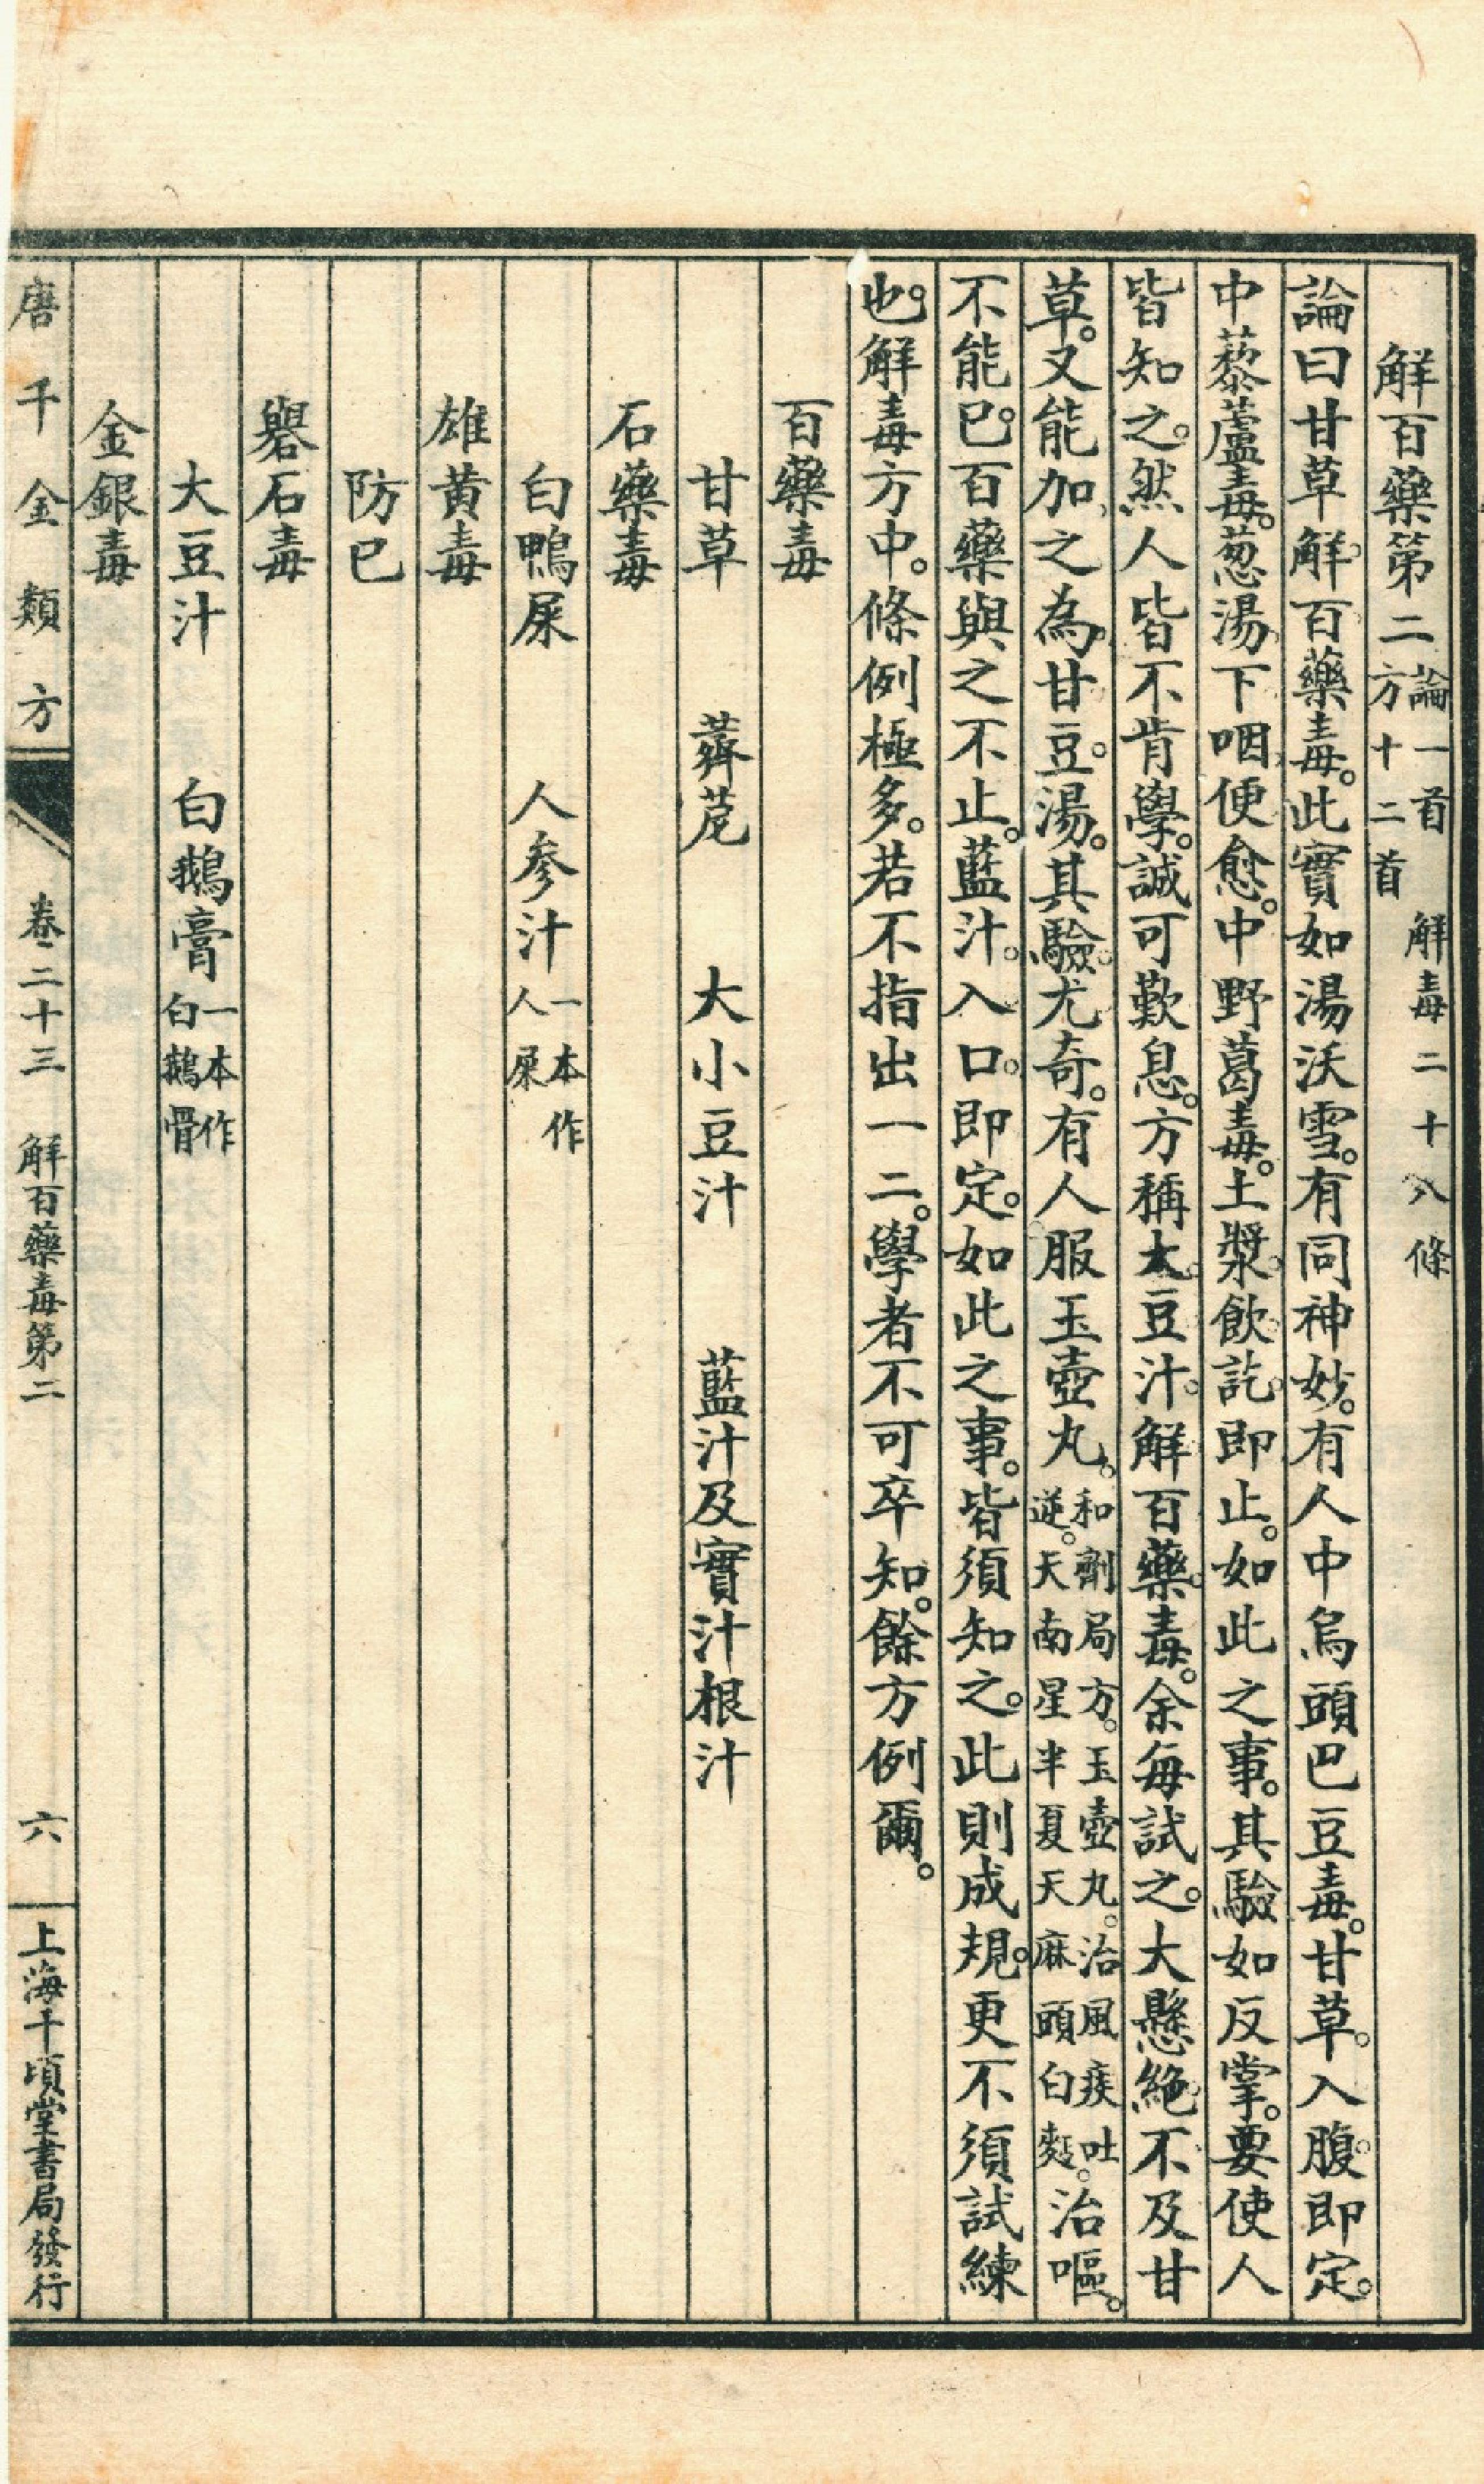 解百藥第二論一首方十二首 解毒二十八條
論曰甘草解百藥毒。此實如湯沃雪。有同神妙。有人中烏頭巴豆毒。甘草入腹即定。
中藜蘆毒。葱湯下咽便愈。中野葛毒。土漿飲訖即止。如此之事。其驗如反掌。要使人
皆知之。然人皆不肯學。誠可歎息。方稱大豆汁解百藥毒。余每試之。大懸絶不及甘
草。又能加之為甘豆湯。其驗尤奇。有人服玉壺丸。和劑局方。玉壺丸。治風痰吐逆。天南星半夏天麻頭白麪。治嘔。
不能已。百藥與之不止。藍汁入口即定。如此之事。皆須知之。此則成規。更不須試練
也。解毒方中。條例極多。若不指出一二。學者不可卒知。餘方例爾。
百藥毒
甘草 薺苨 大小豆汁 藍汁及實汁根汁
石藥毒
白鴨屎 人參汁一本作人屎
雄黃毒
防已
礜石毒
大豆汁 白鵝膏一本作白鵝骨
金銀毒
唐千金類方 卷二十三 解百藥毒第二 六 上海千頃堂書局發行